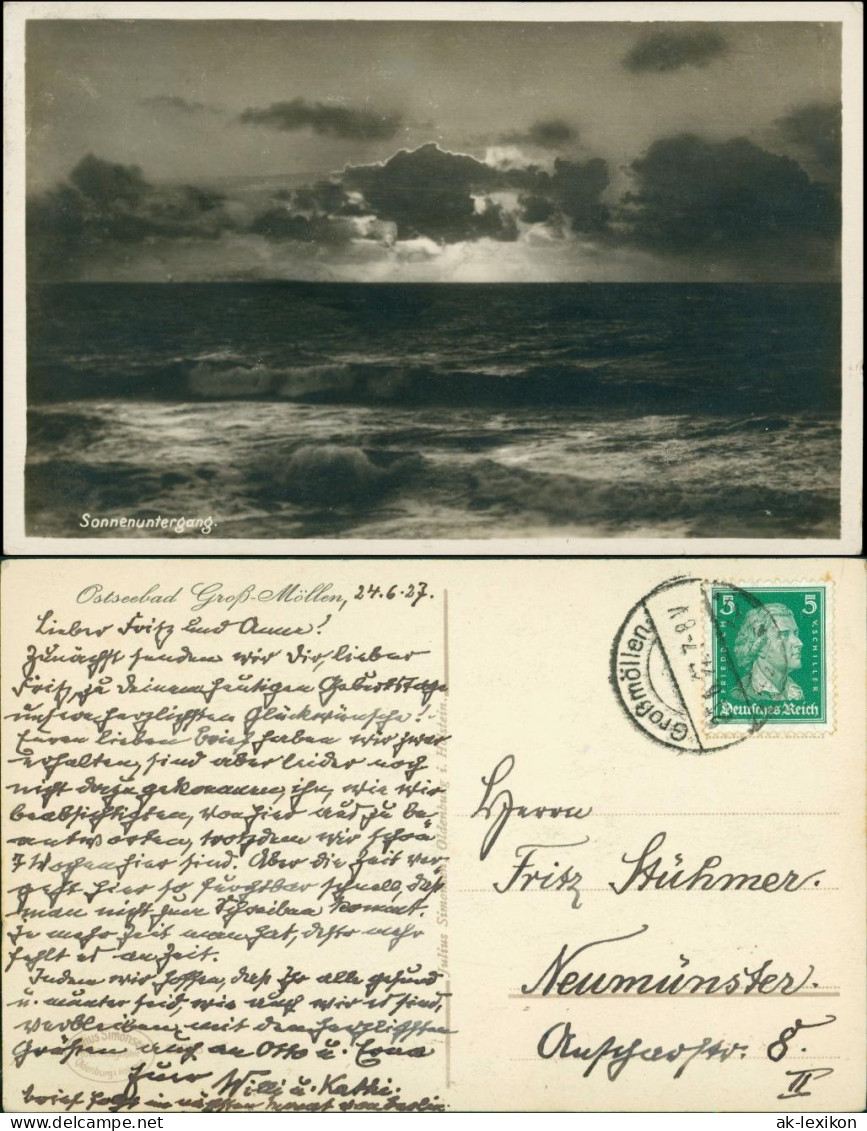 Sonnenuntergang.
Ostseebad Groß-Möllen, 24.6.27.
Lieber Fritz und Anne!
Zunächst senden wir Dir, lieber
Fritz, zu deinem heutigen Geburtstage
unsere herzlichsten Glückwünsche!
Euren lieben Brief haben wir zwar
erhalten, sind aber leider noch
nicht dazu gekommen, ihn, wie wir
beabsichtigten, von hier aus zu be-
antworten, trotzdem wir schon
7 Wochen hier sind. Aber die Zeit ver-
geht hier so furchtbar schnell, daß
man nicht zum Schreiben kommt.
Je mehr Zeit man hat, desto mehr
fehlt es an Zeit.
Indem wir hoffen, daß Ihr alle gesund
u. munter seid, wie auch wir es sind,
verbleiben mit den herzlichsten
Grüßen auch an Otto u. Erna
Eure Willi u. Kathi.
Brief folgt im nächsten Monat von Berlin.
Julius Simonsen, Oldenburg i. Holstein.
Großmöllen
5 5
FRIEDRICH V. SCHILLER
Deutsches Reich
Herrn
Fritz Stühmer.
Neumünster.
Anscharstr. 8.
II
ak-lexikon
www.delcampe.net